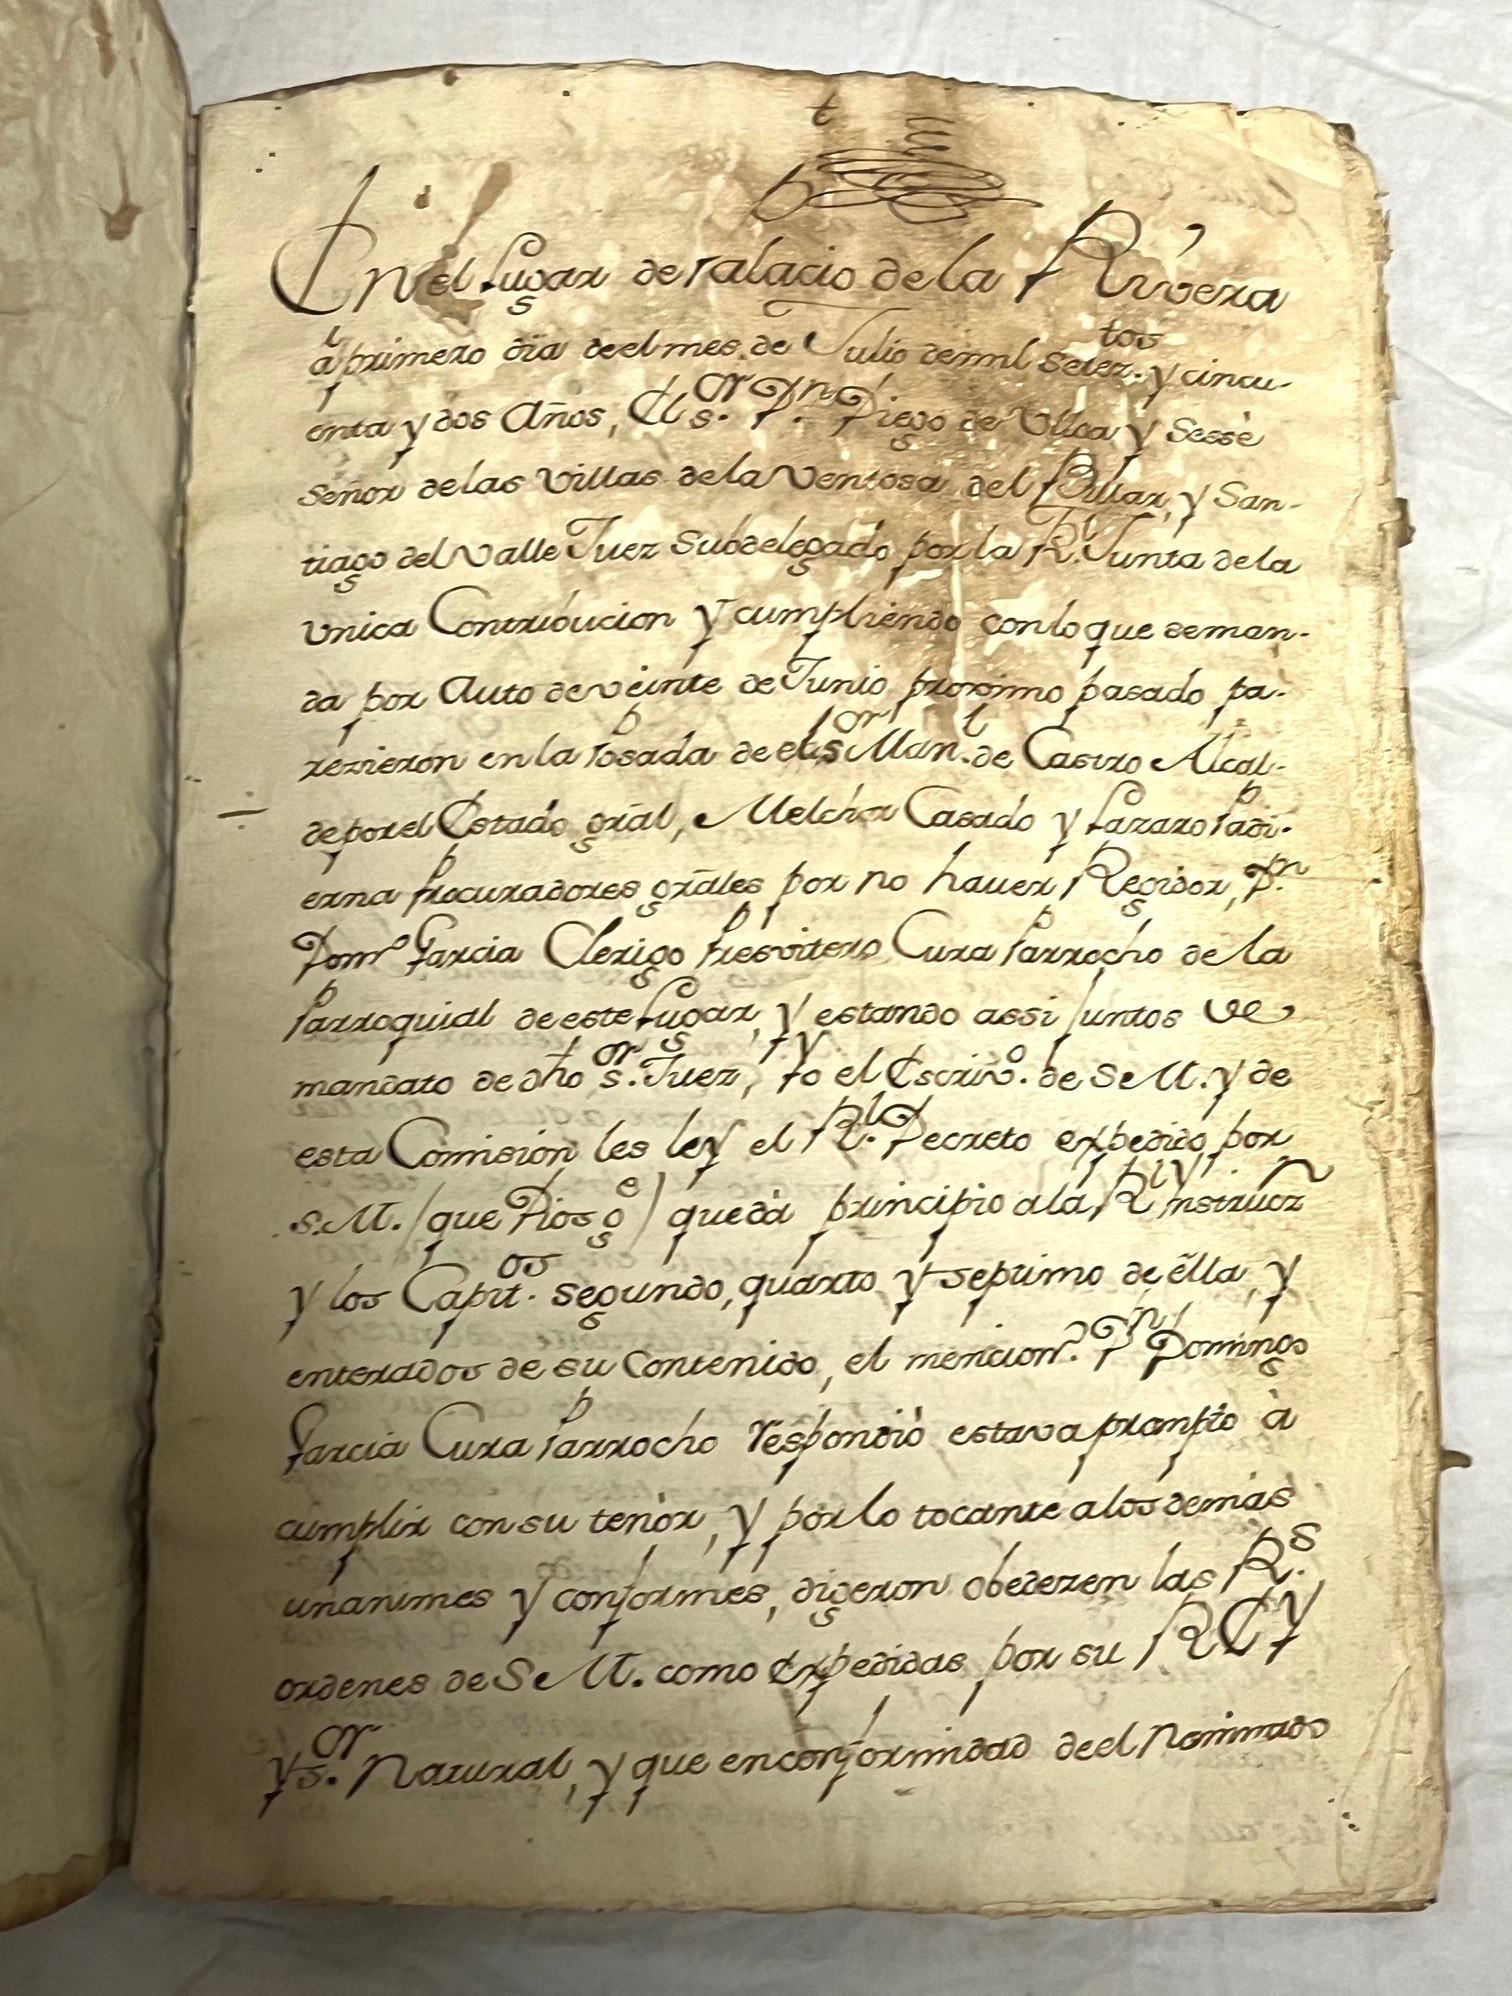 t
En el Lugar de Palacio de la Rivera
à primero dia de el mes de Julio de mil Setez.tos y cincu-
enta y dos Años, El s.or D.n Diego de Ulloa y Sessè
Señor de las Villas de la Ventosa, del Pillar, y San-
tiago del Valle Juez Subdelegado por la R.l Junta de la
Vnica Contribucion y cumpliendo con lo que se man-
da por Auto de veinte de Junio proximo pasado pa-
rezieron en la Posada de el s.or Man.l de Castro Alcal-
de por el Estado gral, Melchor Casado y Lazaro Padi-
erna Procuradores grales por no hauer Regidor, D.n
Dom.o Garcia Clerigo Presvitero Cura Parrocho de la
Parroquial de este Lugar, y estando assi Juntos de
mandato de dho s.or Juez, Yo el Escriv.o de S. M. y de
esta Comision les ley el R.l Decreto expedido por
S. M. (que Dios g.e) que dà principio a la R.l Ynstrucz.n
y los Capit.os segundo, quarto y septimo de èlla, y
enterados de su Contenido, el mencion.do D.n Domingo
Garcia Cura Parrocho respondiò estava prompto à
cumplir con su tenòr, y por lo tocante a los demàs
unanimes y conformes, digeron obedezen las R.s
ordenes de S. M. como Expedidas por su REY
y s.or Natural, y que en conformidad de el nominado